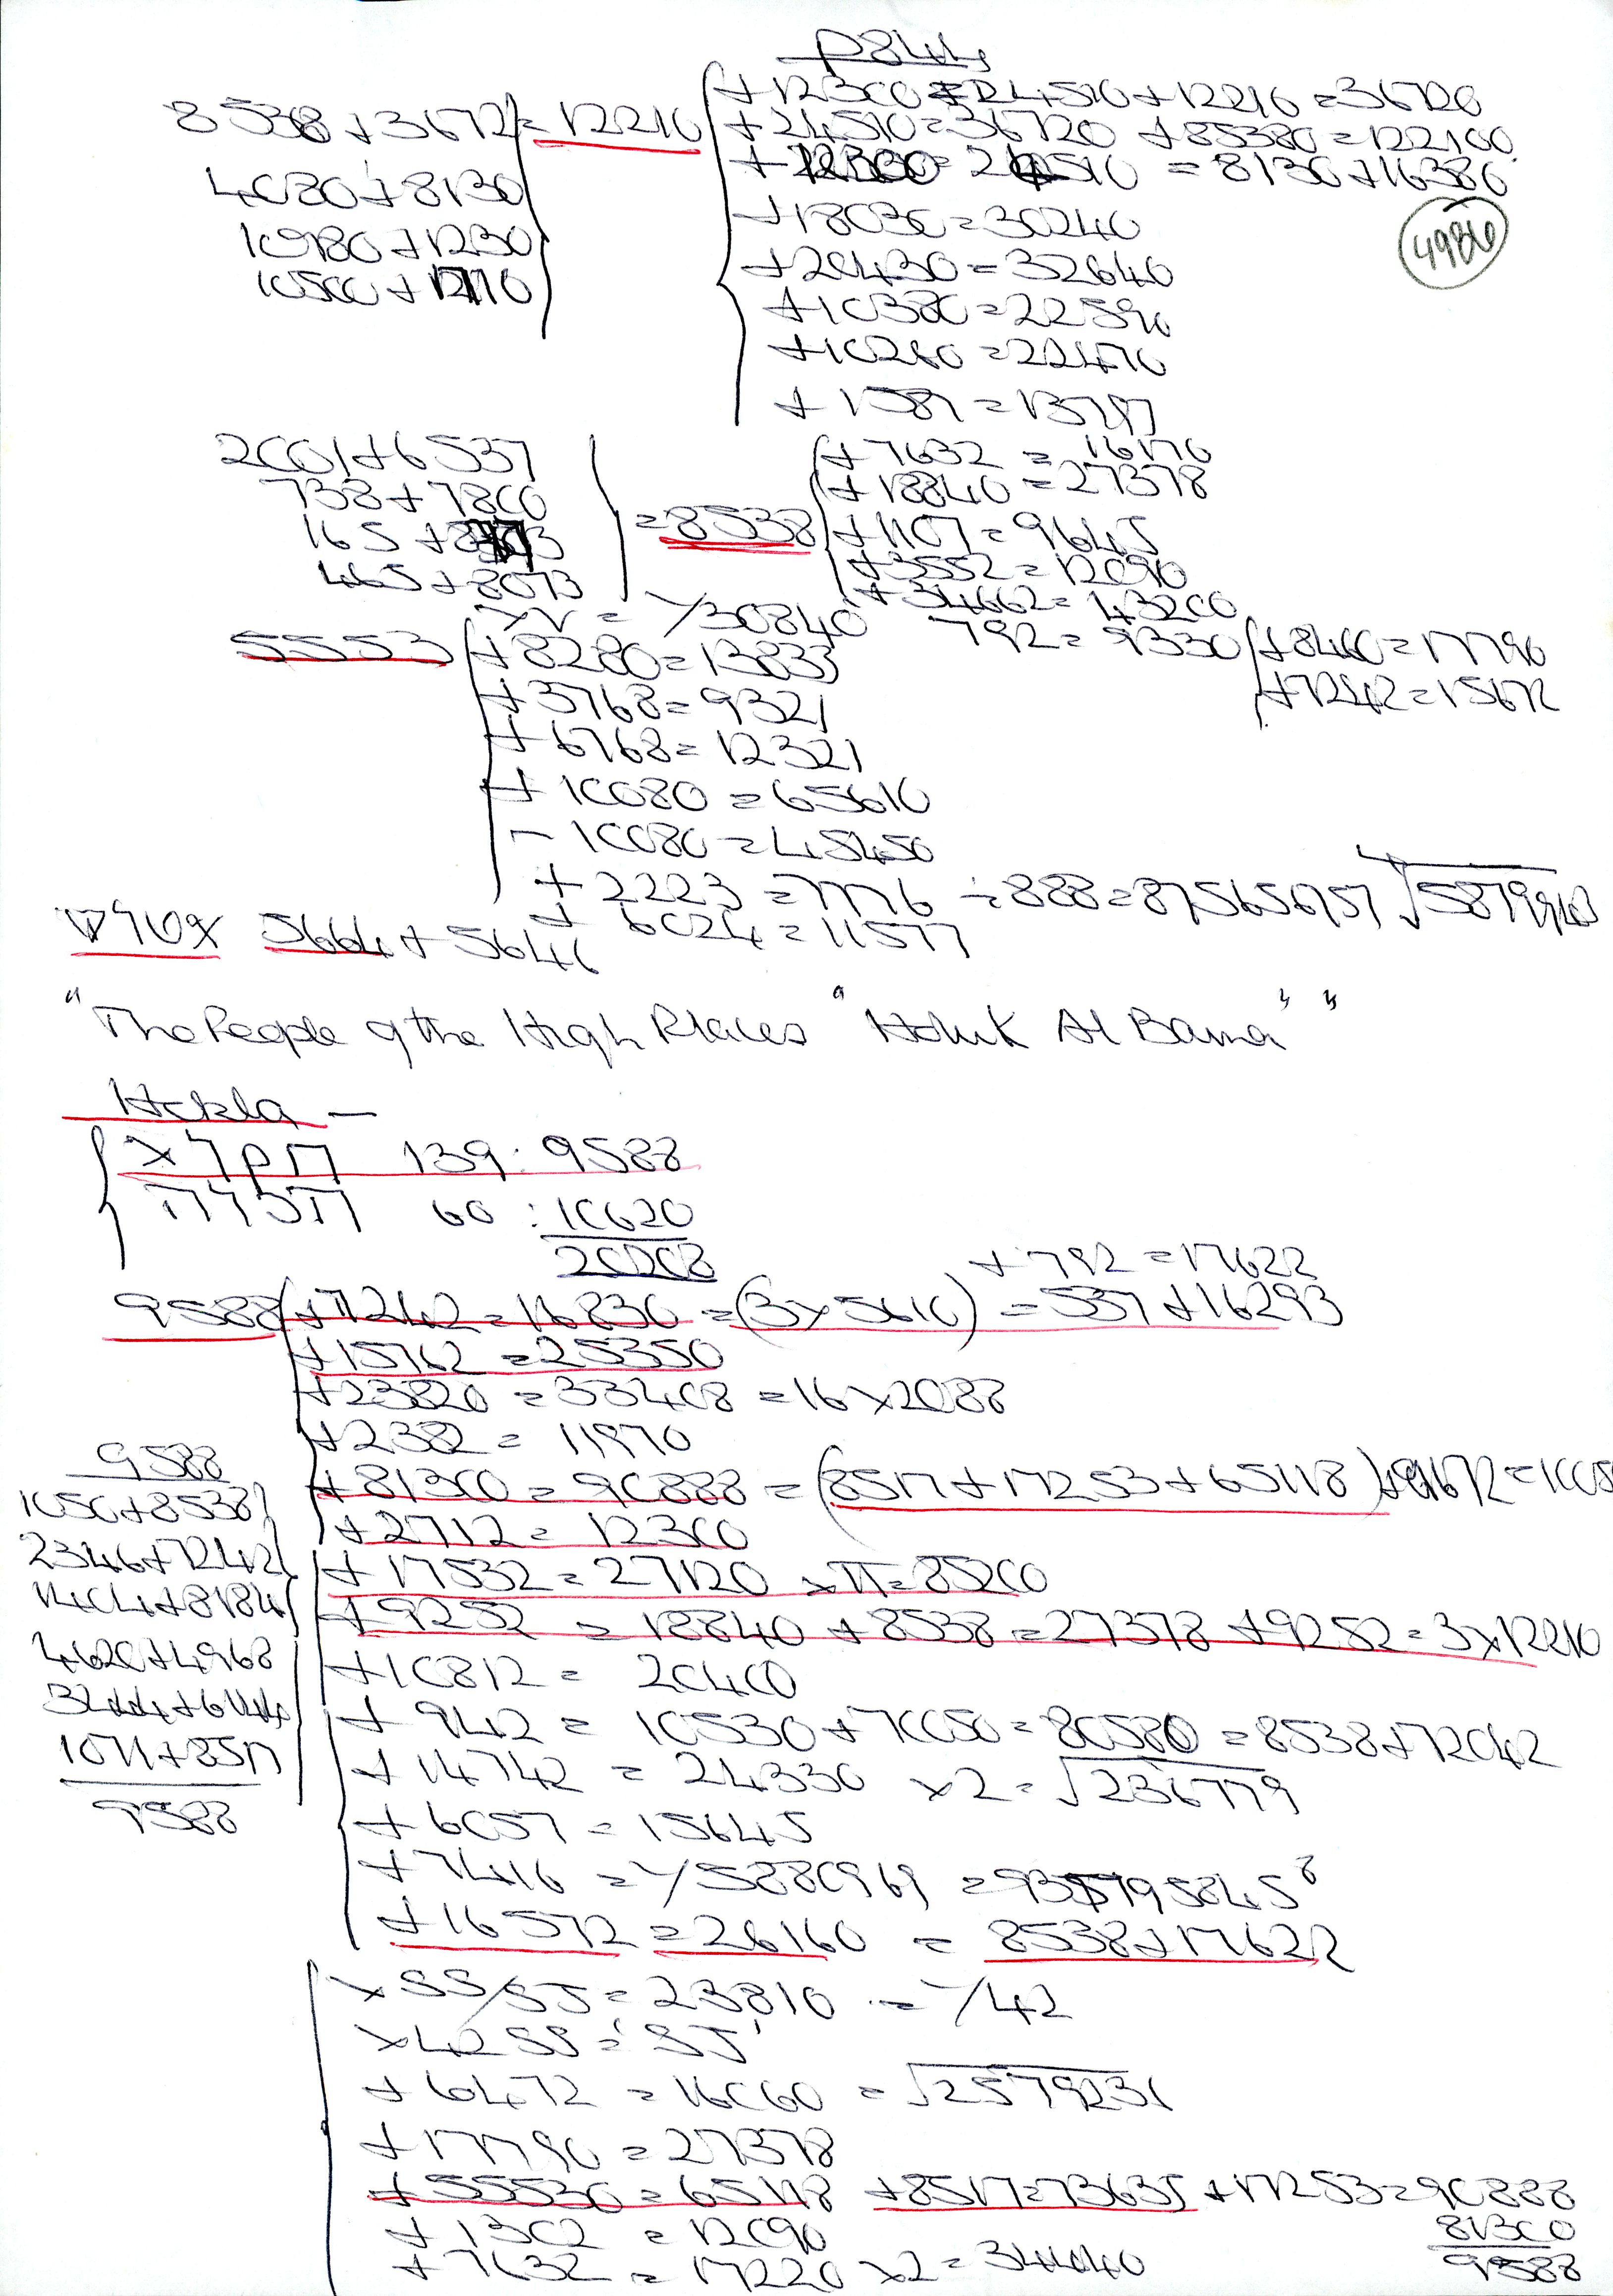 P844
8538 + 3672 = 12210
4080 + 8130
10980 + 1230
10500 + 1710
+ 12300 = 24510 + 12210 = 36720
+ 24510 = 36720 + 85380 = 122100
+ 12300 = 24510 = 8130 + 16380
4986
+ 18030 = 30240
+ 20430 = 32640
+ 10380 = 22590
+ 10260 = 22470
+ 1587 = 13797
2001 + 6537
738 + 7800
465 + 8073
= 8538
+ 7632 = 16170
+ 18840 = 27378
+ 1107 = 9645
+ 3552 = 12090
+ 34662 = 43200
792 = 9330 + 8460 = 17790
+ 7242 = 15672
5553 + 8280 = 13833
+ 3768 = 9321
+ 6768 = 12321
+ 10080 = 65610
- 10080 = 45450
+ 2223 = 7776 ÷ 888 = 875656757
+ 6024 = 11577
5664 + 5646
"The People of the High Places "
Hekla —
139 : 9588
60 : 10620
20208
+ 792 = 17622
9588 + 7242 = 16830 = (3 x 5610) = 537 + 16293
+ 15762 = 25350
+ 23820 = 33408 = 16 x 2088
+ 2382 = 11970
+ 81300 = 90888 = (8517 + 17253 + 65118)
+ 2712 = 12300
+ 17532 = 27120 x π = 85200
+ 9252 = 18840 + 8538 = 27378 + 9252 = 3 x 12210
+ 10812 = 20400
+ 942 = 10530 + 70050 = 80580 = 8538 + 72042
+ 14742 = 24330 x 2 = √236779
+ 6057 = 15645
+ 16572 = 26160 = 8538 + 17622
9588
1050 + 8538
2346 + 7242
1404 + 8184
4620 + 4968
3444 + 6144
1071 + 8517
9588
+ 6472 = 16060 = √2579231
+ 17790 = 27378
+ 55530 = 65118 + 8517 = 73635 + 17253 = 90888
81300
9588
+ 1302 = 12090
+ 7632 = 17220 x 2 = 34440